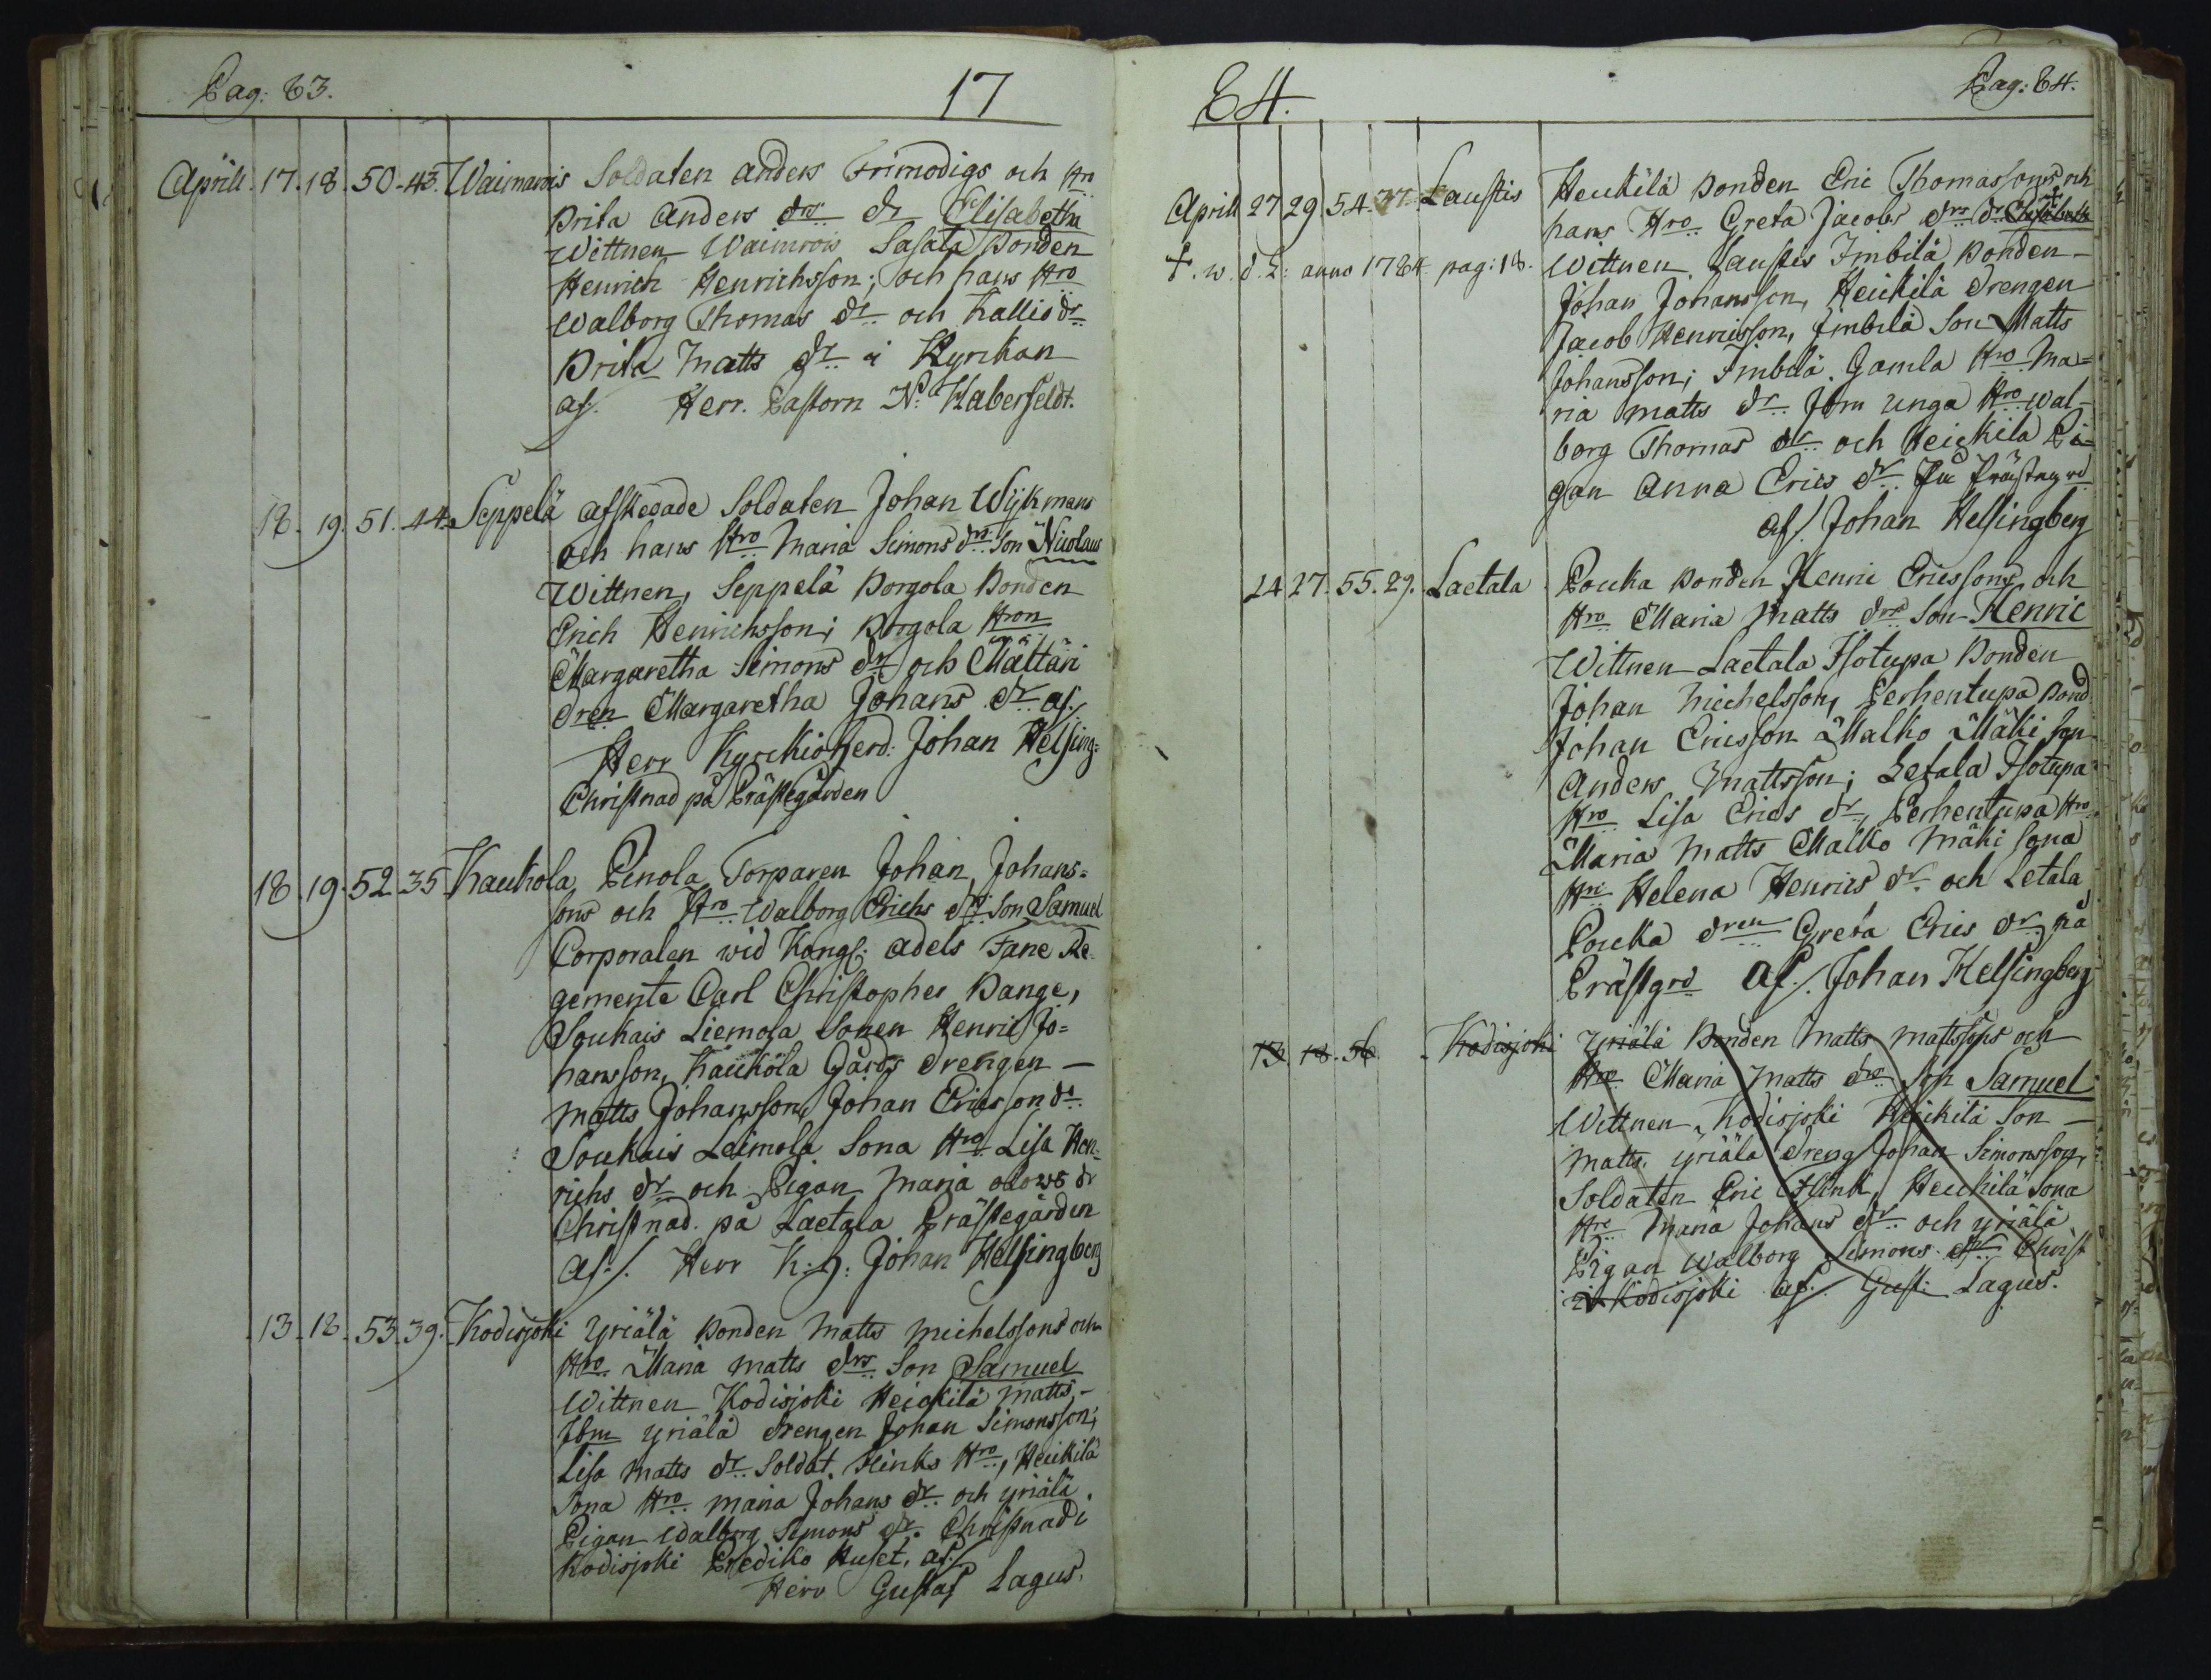 Pag: 83.
17
Aprill. 17. 18. 50. 43. Waimarois Soldaten Anders Frimodigs och Hro
Brita Anders drs dr Elisabetha
Wittnen Waimrois Sasala Bonden
Henrich Henrichsson; och hans Hro
Walborg Thomas dr och Kallio dr
Brita Matts dr i Kyrckan
af. Herr. Pastorn N: Haberfeldt.
18. 19. 51. 44. Seppelä afskedade Soldaten Johan Wijkmans
och hans Hro Maria Simons drs Son Nicolaus
Wittnen, Seppelä Borgola Bonden
Erich Henrichsson; Borgola Hron
Margaretha Simons dr och Mättäri
dren Margaretha Johans dr af./
Herr Kyrckioherd: Johan Helsing:
Christnad på Prästegården
18. 19. 52. 35 Kaukola Pinola Torparen Johan Johans=
sons och Hro Walborg Erichs drs Son Samuel
Corporalen wid Kongl: adels Fane Re-
gemente Carl Christopher Bange,
Soukais Liemola Sonen Henric Jo=
hansson, Kaukola Gårds Drengen -
Matts Johansson, Johan Ericsson dr
Soukais Leimola Sona Hro Lisa Hen:
richs dr och Pigan Maria olows dr
Christnad. på Laetala Prästegården
af./. Herr K: h: Johan Helsingberg
13. 18. 53. 39. Kodisjoki Yriälä Bonden Matts Michelssons och
Hro Maria Matts drs Son Samuel
Wittnen Kodisjoki Heickilä Matts, -
Ibm Yriälä Drengen Johan Simonsson;
Lisa Matts dr Soldat. Flinks Hro, Heickilä
Sona Hro Maria Johans dr och yriälä
Pigan Walborg Simons dr Christnad i
Kodisjoki Prediko Huset, af./
Herr Gustaf Lagus.
84.
Pag: 84.
Aprill 27 29 54. 37. Laustis Heickilä Bonden Eric Thomassons och
hans Hro Greta Jacobs drs dr Elisabeth
†. w. d. 2: anno 1784 pag: 18. Wittnen. Laustis Imbilä Bonden -
Johan Johansson, Heickilä Drengen
Jacob Henricsson, Imbilä Son Matts
Johansson; Imbilä. Gamla Hro Ma=
ria Matts dr Ibm unga Hro Wal-
borg Thomas dr och Heickila Pi-
gan Anna Erics dr På Prästagrd
af./. Johan Helsingberg
24 27. 55. 29. Laetala Pouka Bonden Henric Ericssons och
Hro Maria Matts drs Son Henric
Wittnen Laetala Isotupa Bonden
Johan Michelsson, Perhentupa Bond
Johan Ericsson Malko Mäki Son
Anders Mattsson; Letala Isotupa
Hro Lisa Erics dr, Perhentupa Hro
Maria Matts Malko Mäki Sona
Hro Helena Henrics dr och Letala
Pouka dren Greta Erics dr, på
Prästgrd af./. Johan Helsingberg
13. 18. 56. Kodisjoki Yriälä Bonden Matts Mattssons och
Hro Maria Matts drs Son Samuel
Wittnen. Kodisjoki Heickilä Son -
Matts. yriäla Dreng Johan Simonsson,
Soldaten Eric Flink, Heickilä Sona
Hro Maria Johans dr och yriälä
Pigan Walborg Simons dr Christ
i Kodisjoki af./. Gust: Lagus.